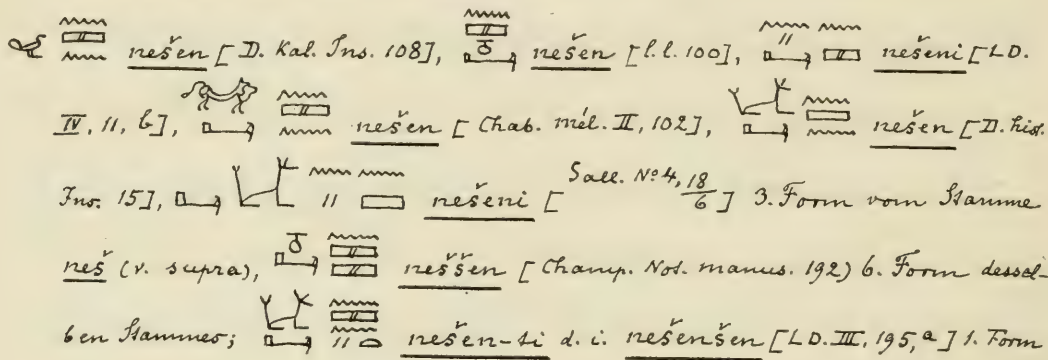 nešen [D. Kal. Ins. 108], nešen [l.l. 100], nešeni [LD.
IV, 11, b], nešen [Chab. mél. II, 102], nešen [D. hist.
Ins. 15], nešeni [Sall. No 4, 18/6] 3. Form vom Stamme
neš (v. supra), neššen [Champ. Not. manus. 192) 6. Form dessel-
ben Stammes; nešen-ti d. i. nešenšen [LD. III, 195, a] 1. Form